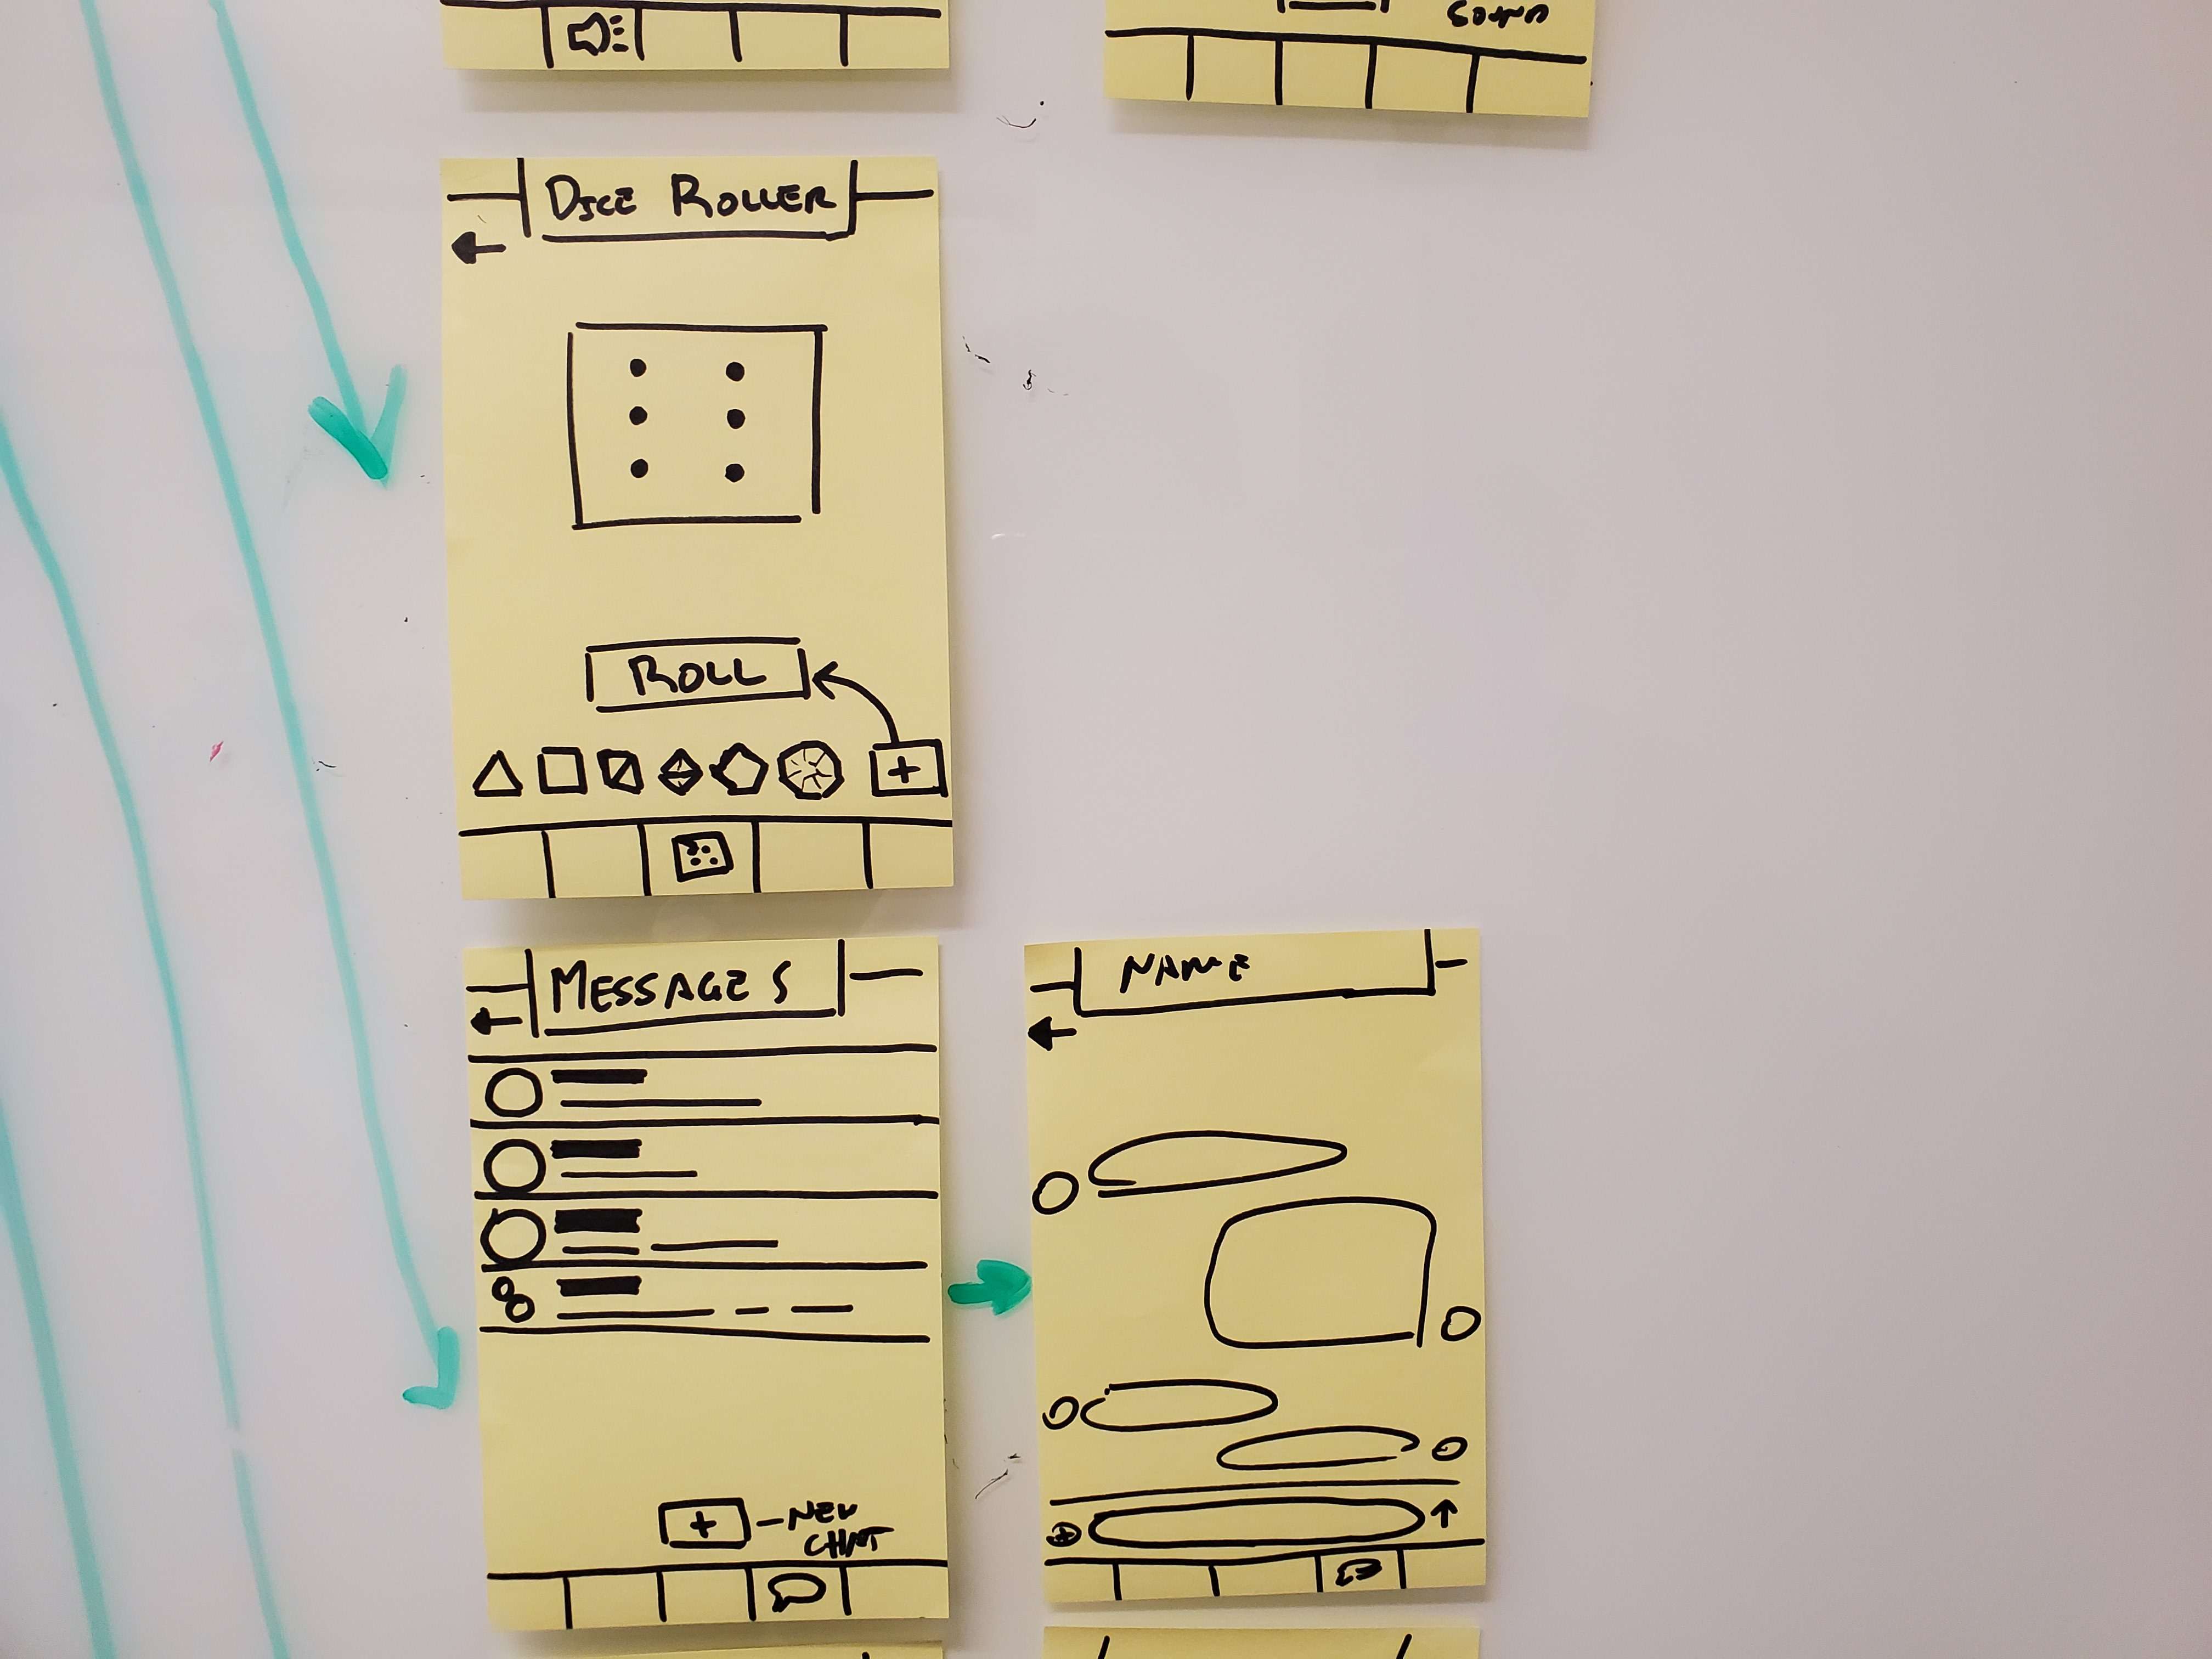 SOUND
DICE ROLLER
ROLL
+
MESSAGES
+ - NEW
CHAT
NAME
+